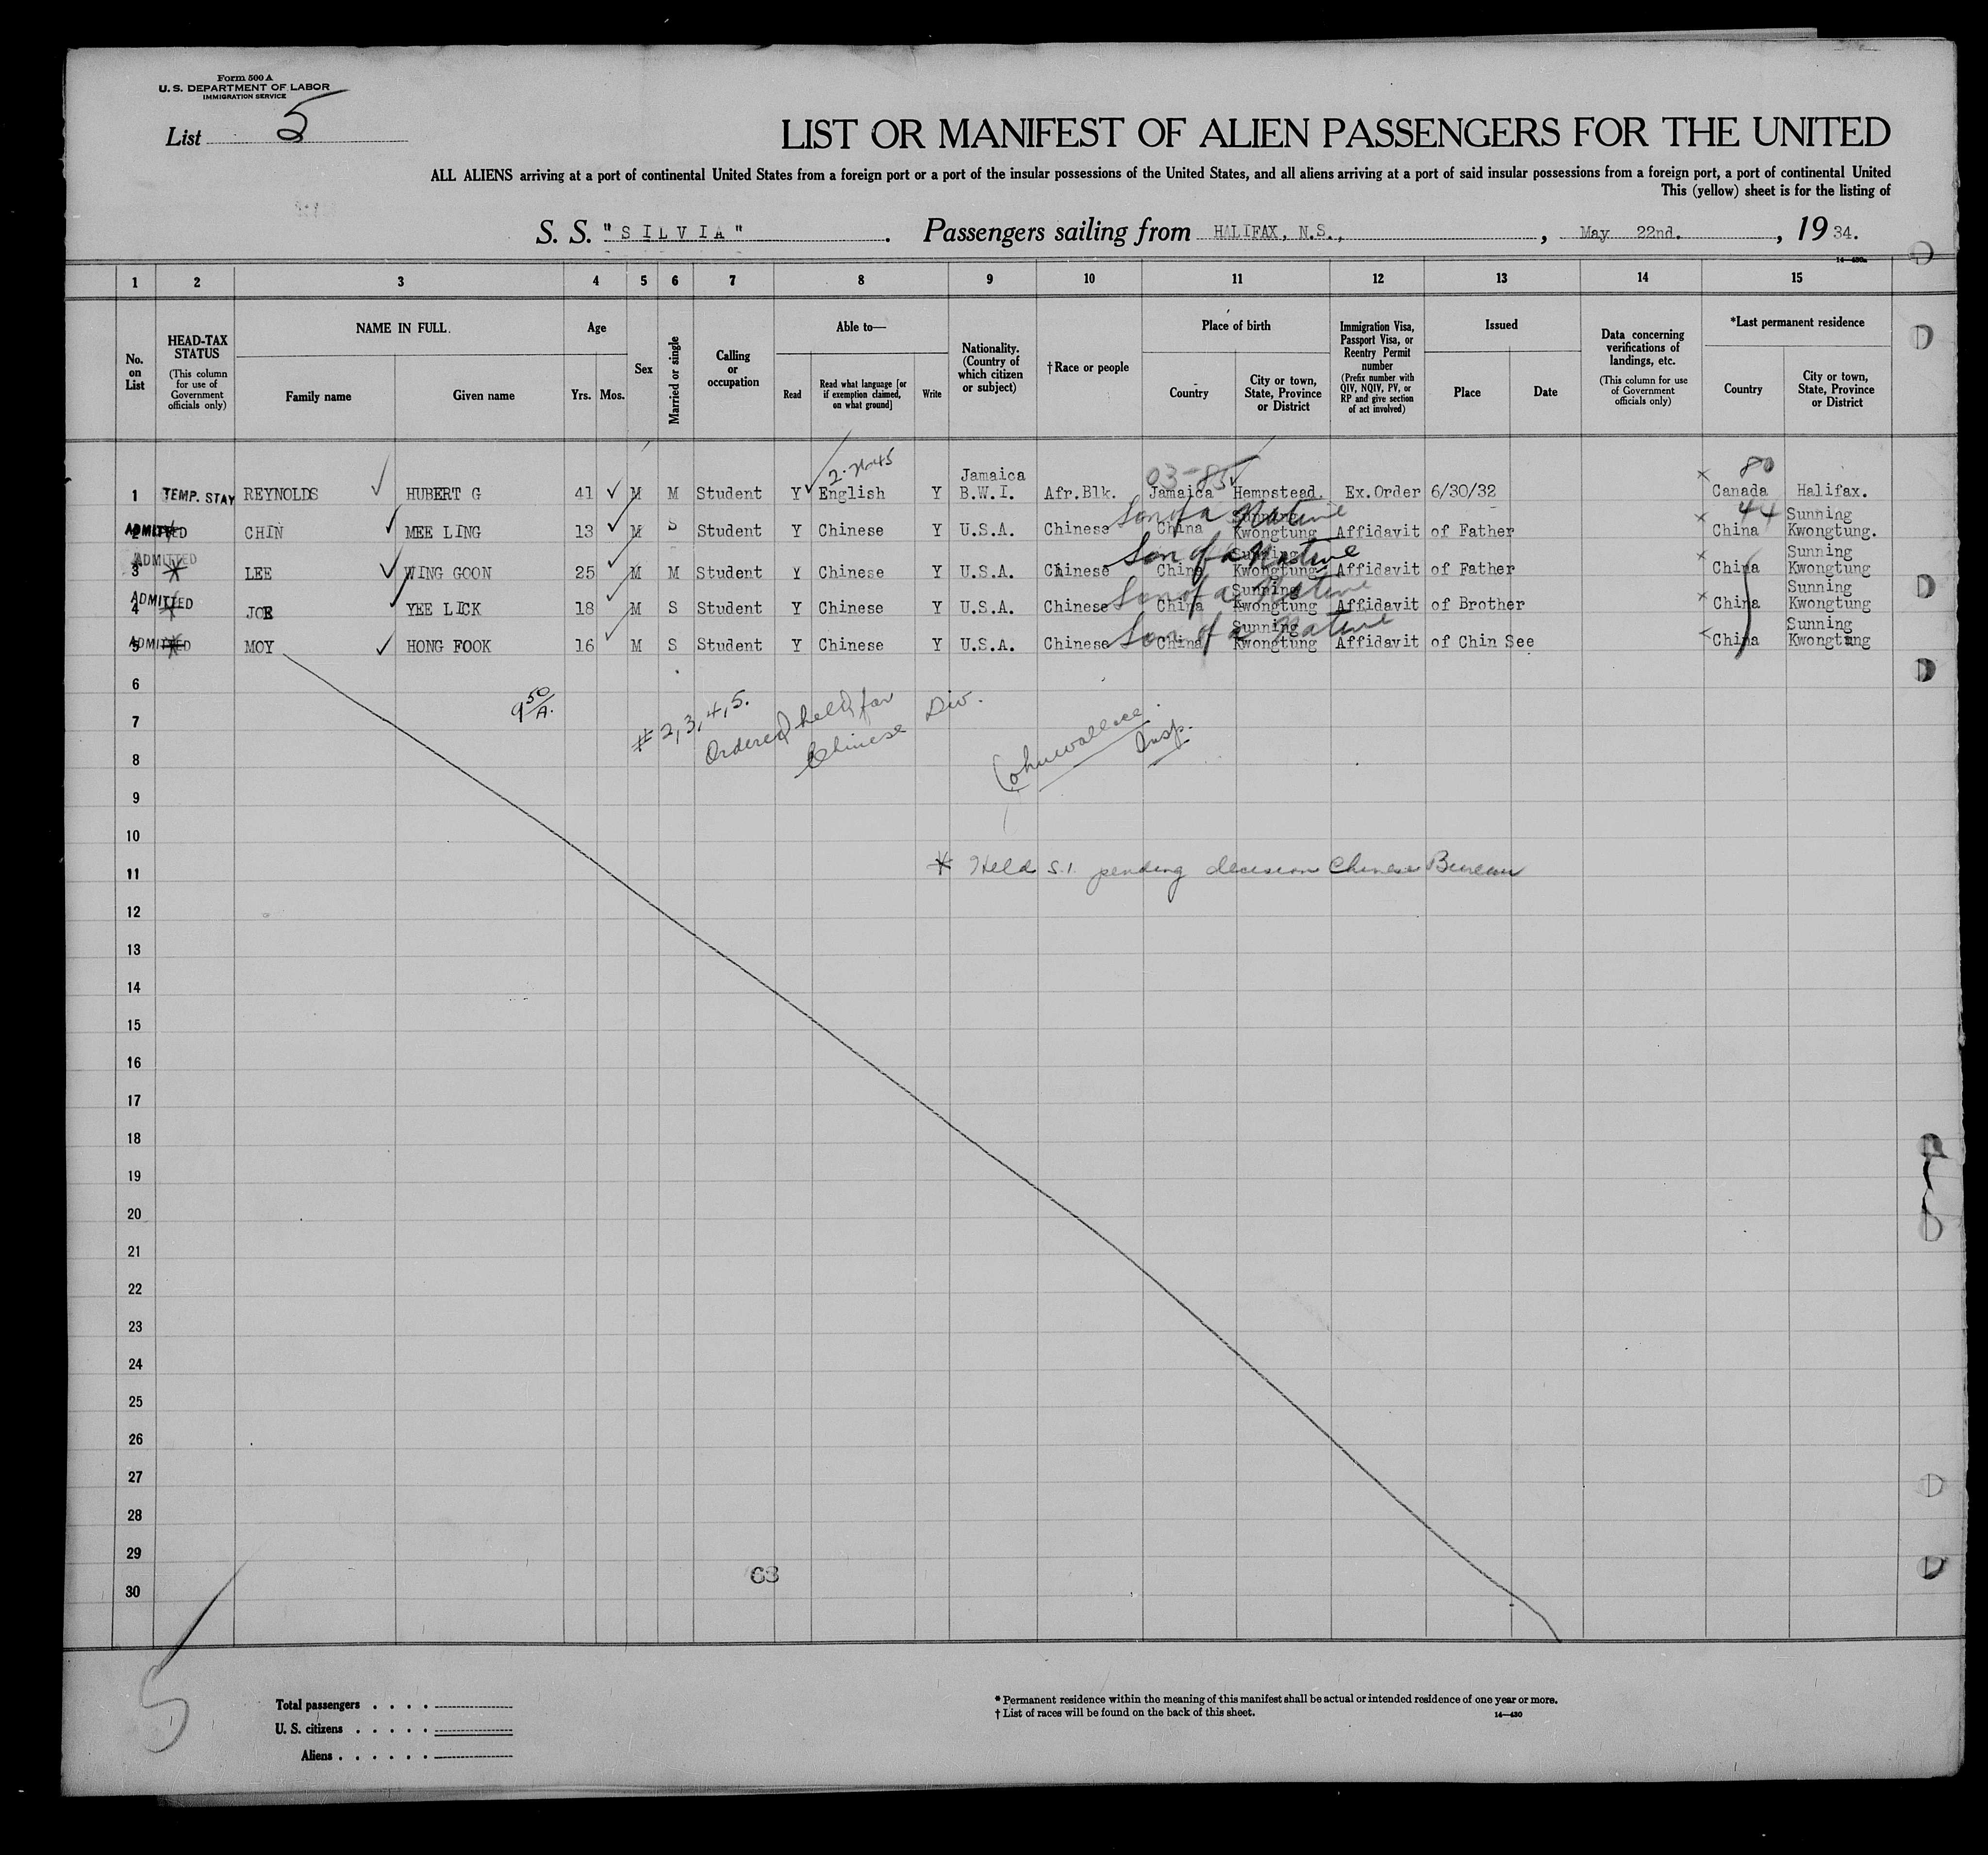 Form 500 A
U. S. DEPARTMENT OF LABOR
IMMIGRATION SERVICE
List 5
LIST OR MANIFEST OF ALIEN PASSENGERS FOR THE UNITED
ALL ALIENS arriving at a port of continental United States from a foreign port or a port of the insular possessions of the United States, and all aliens arriving at a port of said insular possessions from a foreign port, a port of continental United
This (yellow) sheet is for the listing of
S. S. "SILVIA". Passengers sailing from HALIFAX, N.S., , May 22nd. , 1934.
14—430a
1 2 3 4 5 6 7 8 9 10 11 12 13 14 15
No. on List
HEAD-TAX STATUS
(This column for use of Government officials only)
NAME IN FULL.
Family name Given name
Age
Yrs. Mos.
Sex
Married or single
Calling or occupation
Able to—
Read
Read what language [or if exemption claimed, on what ground]
Write
Nationality. (Country of which citizen or subject)
†Race or people
Place of birth
Country
City or town, State, Province or District
Immigration Visa, Passport Visa, or Reentry Permit number
(Prefix number with QIV, NQIV, PV, or RP and give section of act involved)
Issued
Place Date
Data concerning verifications of landings, etc.
(This column for use of Government officials only)
*Last permanent residence
Country
City or town, State, Province or District
03-85 80
1 TEMP. STAY REYNOLDS HUBERT G 41 M M Student Y English Y Jamaica B.W.I. Afr.Blk. Jamaica Hempstead. Ex.Order 6/30/32 Canada Halifax.
Son of a Native 44
2 ADMITTED CHIN MEE LING 13 M S Student Y Chinese Y U.S.A. Chinese China Sunning Kwongtung Affidavit of Father China Sunning Kwongtung.
Son of a Native
3 ADMITTED LEE WING GOON 25 M M Student Y Chinese Y U.S.A. Chinese China Sunning Kwongtung Affidavit of Father China Sunning Kwongtung
Son of a Native
4 ADMITTED JOE YEE LICK 18 M S Student Y Chinese Y U.S.A. Chinese China Sunning Kwongtung Affidavit of Brother China Sunning Kwongtung
Son of a Native
5 ADMITTED MOY HONG FOOK 16 M S Student Y Chinese Y U.S.A. Chinese China Sunning Kwongtung Affidavit of Chin See China Sunning Kwongtung
6
9 50/A.
# 2, 3, 4, 5.
7
Ordered held for
Chinese Div.
Insp.
8
9
10
11 * Held S.I. pending decision Chinese Bureau
12
13
14
15
16
17
18
19
20
21
22
23
24
25
26
27
28
29
63
30
5
Total passengers . . . .
U. S. citizens . . . . .
Aliens . . . . . .
* Permanent residence within the meaning of this manifest shall be actual or intended residence of one year or more.
† List of races will be found on the back of this sheet.
14—430